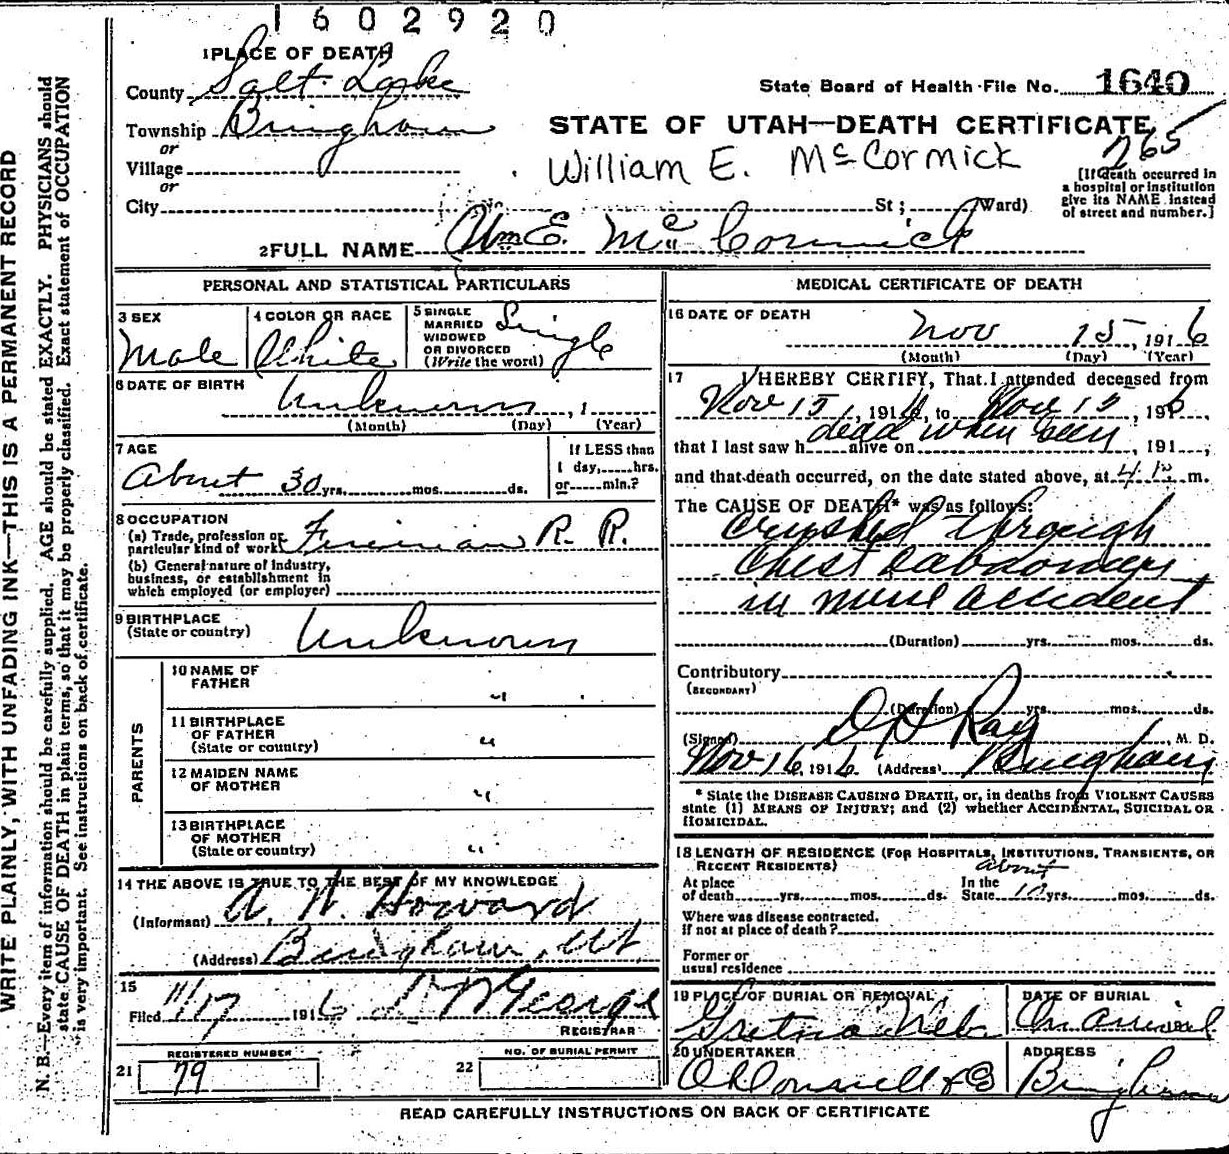 1602920
1 PLACE OF DEATH
County Salt Lake
State Board of Health File No. 1640
Township Bingham
STATE OF UTAH—DEATH CERTIFICATE
265
or
Village
William E. McCormick
or
City
St; (Ward)
[If death occurred in
a hospital or institution
give its NAME instead
of street and number.]
2 FULL NAME Wm E. McCormick
PERSONAL AND STATISTICAL PARTICULARS
3 SEX
Male
4 COLOR OR RACE
White
5 SINGLE
MARRIED
WIDOWED
OR DIVORCED
(Write the word)
Single
6 DATE OF BIRTH
Unknown , 1
(Month) (Day) (Year)
7 AGE
About 30 yrs. mos. ds.
If LESS than
1 day, hrs.
or min.?
8 OCCUPATION
(a) Trade, profession or
particular kind of work Fireman R. R.
(b) General nature of industry,
business, or establishment in
which employed (or employer)
9 BIRTHPLACE
(State or country) Unknown
PARENTS
10 NAME OF
FATHER "
11 BIRTHPLACE
OF FATHER
(State or country) "
12 MAIDEN NAME
OF MOTHER "
13 BIRTHPLACE
OF MOTHER
(State or country) "
14 THE ABOVE IS TRUE TO THE BEST OF MY KNOWLEDGE
(Informant) A. W. Howard
(Address) Bingham, Ut.
15
Filed 11/17 1916
REGISTRAR
REGISTERED NUMBER
21 79
NO. OF BURIAL PERMIT
22
MEDICAL CERTIFICATE OF DEATH
16 DATE OF DEATH
Nov 15, 1916
(Month) (Day) (Year)
17 I HEREBY CERTIFY, That I attended deceased from
Nov 15, 1916, to Nov 15, 1916,
dead when seen
that I last saw h alive on , 191 ,
and that death occurred, on the date stated above, at 4 m.
The CAUSE OF DEATH* was as follows:
crushed through
chest & abdomen
in mine accident
(Duration) yrs. mos. ds.
Contributory
(SECONDARY)
(Duration) yrs. mos. ds.
(Signed) D H Ray, M. D.
Nov 16, 1916. (Address) Bingham
* State the DISEASE CAUSING DEATH, or, in deaths from VIOLENT CAUSES
state (1) MEANS OF INJURY; and (2) whether ACCIDENTAL, SUICIDAL OR
HOMICIDAL.
18 LENGTH OF RESIDENCE (FOR HOSPITALS, INSTITUTIONS, TRANSIENTS, OR
RECENT RESIDENTS)
At place
of death yrs. mos. ds.
In the
State about 10 yrs. mos. ds.
Where was disease contracted.
if not at place of death?
Former or
usual residence
19 PLACE OF BURIAL OR REMOVAL
Gretna Neb
DATE OF BURIAL
On Arrival
20 UNDERTAKER
O'Donnell & Co
ADDRESS
Bingham
READ CAREFULLY INSTRUCTIONS ON BACK OF CERTIFICATE
WRITE PLAINLY, WITH UNFADING INK—THIS IS A PERMANENT RECORD
N. B.—Every item of information should be carefully supplied. AGE should be stated EXACTLY. PHYSICIANS should
state CAUSE OF DEATH in plain terms, so that it may be properly classified. Exact statement of OCCUPATION
is very important. See instructions on back of certificate.